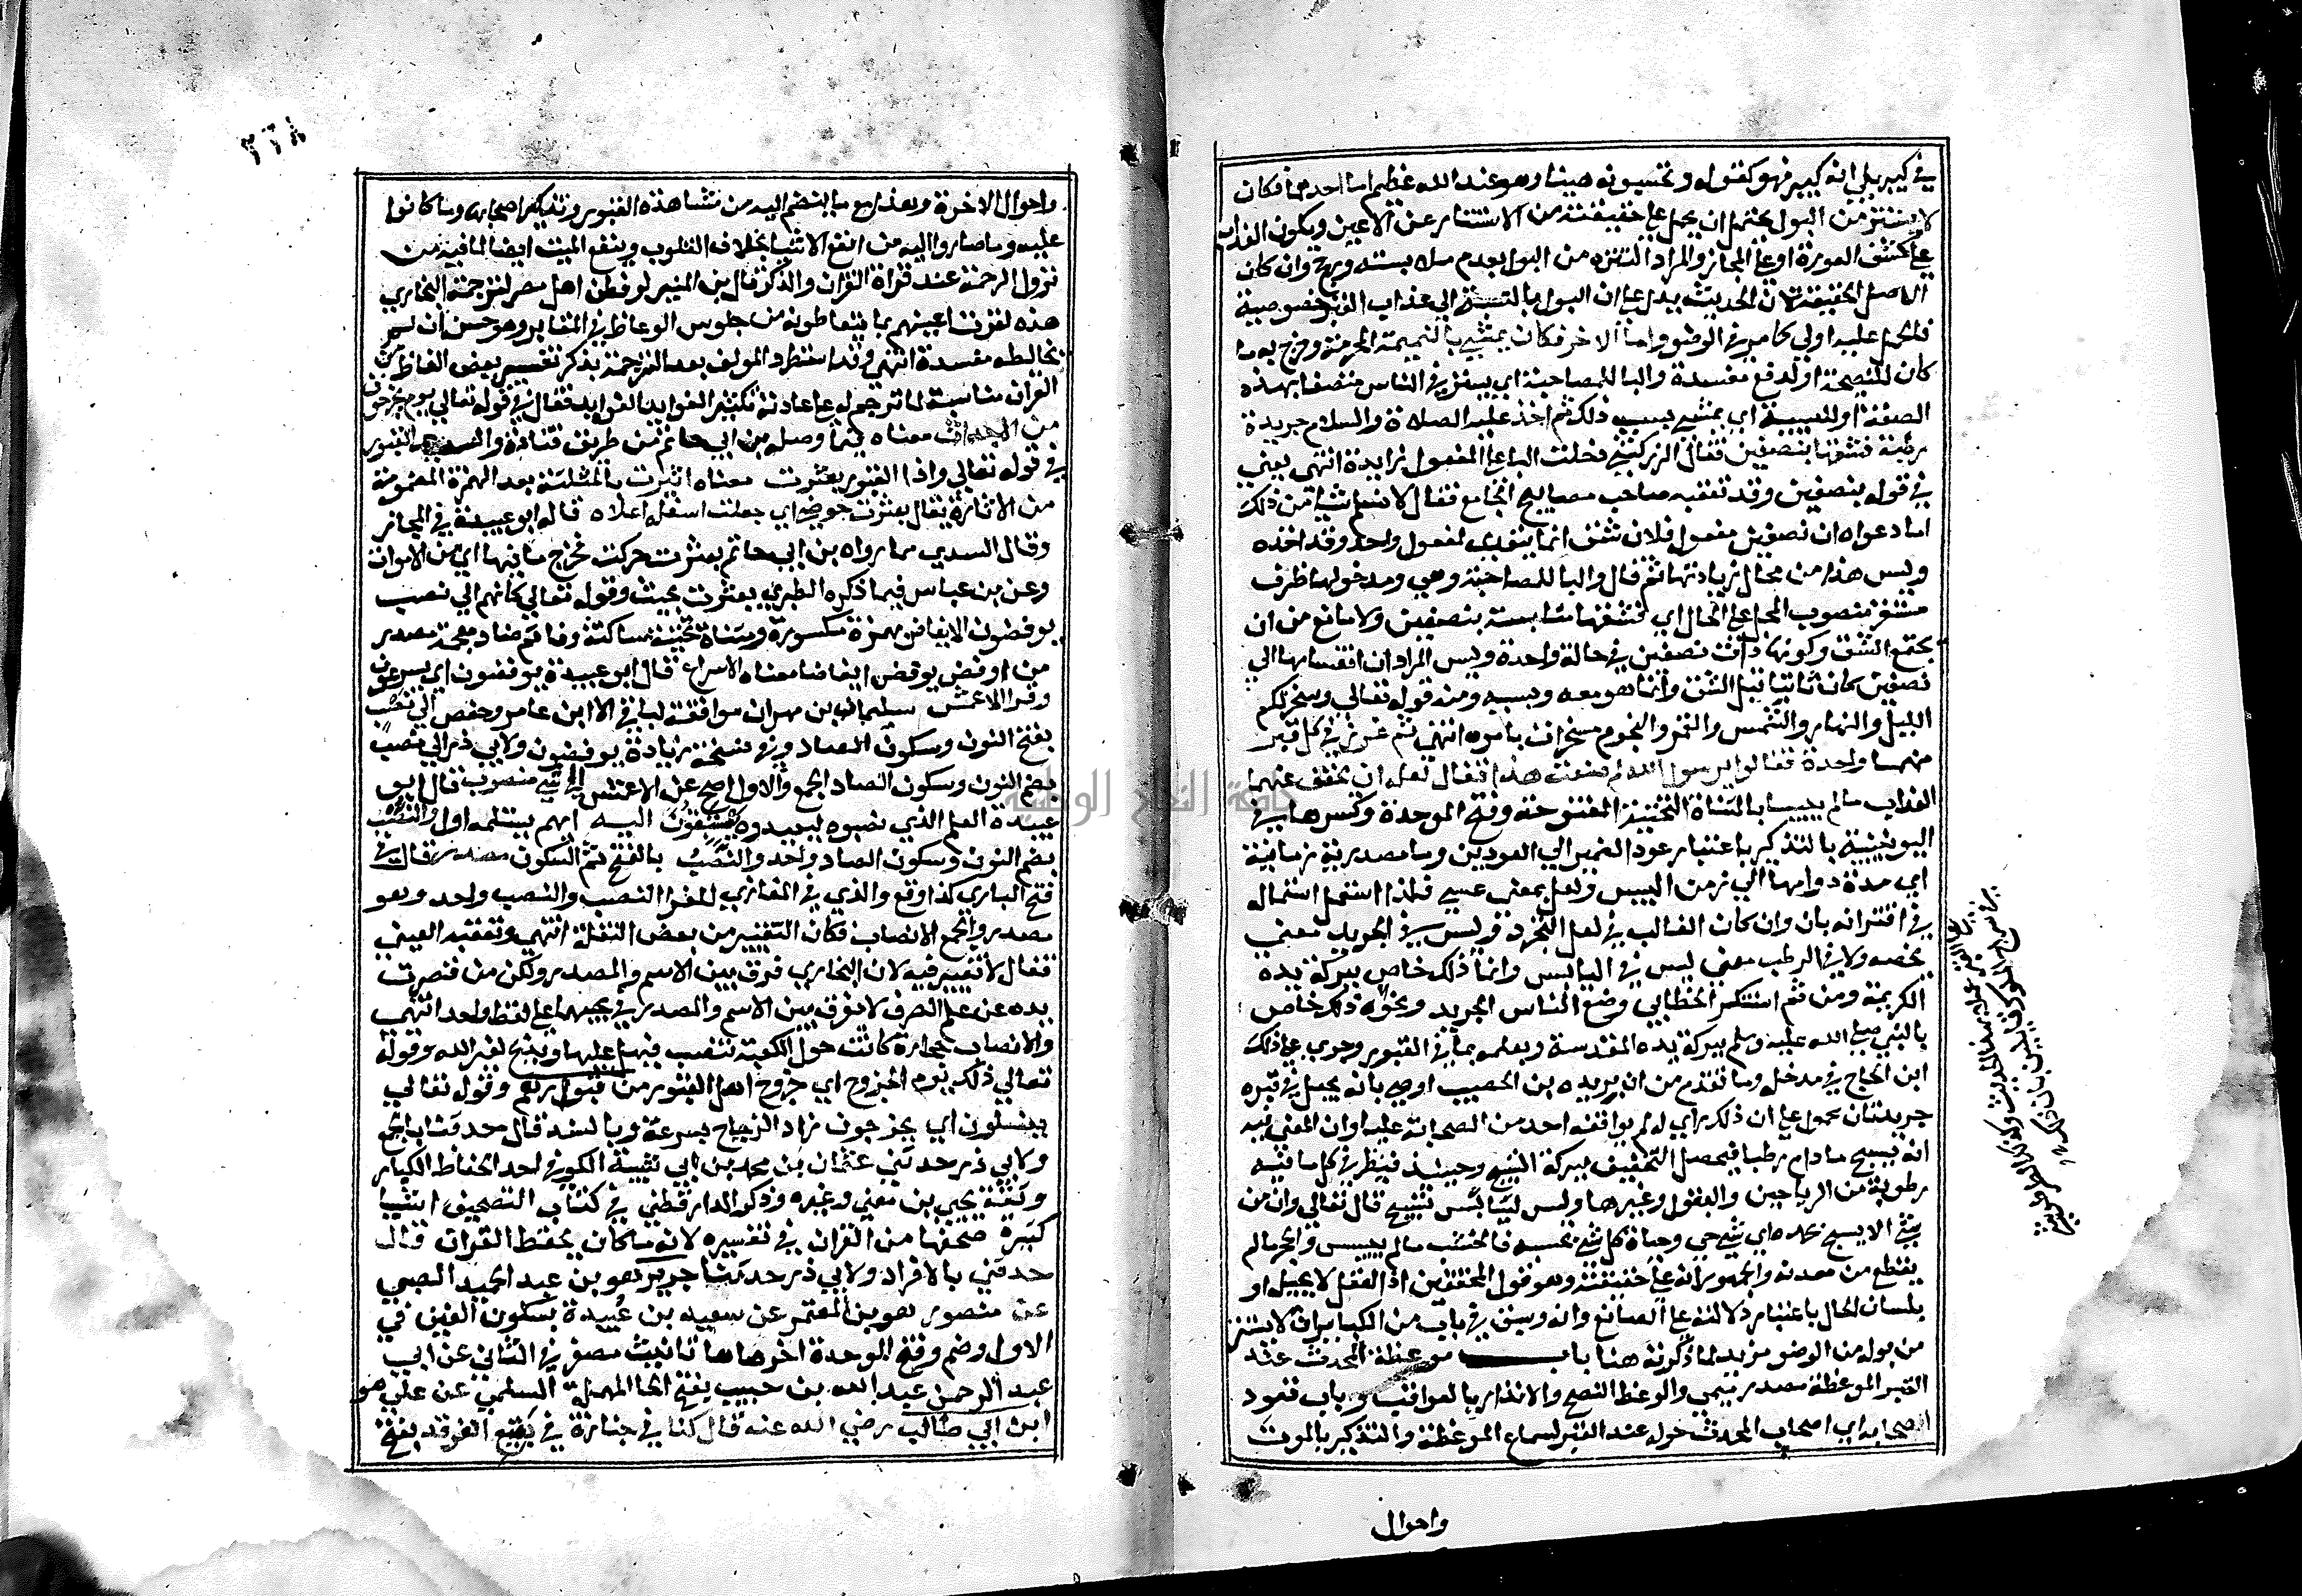 في كبير بلي انه كبير فهو كقوله وتحسبونه هينا وهو عند الله عظيم اما احدهما فكان
لا يستتر من البول يحتمل ان يحمل علي حقيقته من الاستتار عن الاعين ويكون العذاب
علي كشف العورة او علي المجاز والمراد التنزه من البول بعدم ملابسته ورجح وان كان
الاصل الحقيقة لان الحديث يدل علي ان البول بالنسبة الي عذاب القبر خصوصية
فالحمل عليه اولي كما مر في الوضو واما الاخر فكان يمشي بالنميمة المحرمة وخرج به ما
كان للنصيحة او لدفع مفسدة والبا للمصاحبة اي يسير في الناس متصفا بهذه
الصفة او للسببية اي يمشي بسبب ذلك ثم اخذ عليه الصلاة والسلام جريدة
رطبة فشقها بنصفين فقال الزركشي دخلت البا علي المفعول زايدة انتهي يعني
في قوله بنصفين وقد تعقبه صاحب مصابيح الجامع فقال لا نسلم شيا من ذلك
اما دعواه ان نصفين مفعول فلان شق انما يتعدي لمفعول واحد وقد اخذه
وليس هذا من محال زيادتها ثم قال والبا للمصاحبة وهي ومدخولها ظرف
مستقر منصوب المحل علي الحال اي فشقها متلبسة بنصفين ولا مانع من ان
يجتمع الشق وكونها ذات نصفين في حالة واحدة وليس المراد ان انقسامها الي
نصفين كان ثابتا قبل الشق وانما هو معه وبسببه ومنه قوله تعالي وسخر لكم
الليل والنهار والشمس والقمر والنجوم مسخرات بامره انتهي ثم غرز في كل قبر
منهما واحدة فقالوا يا رسول الله لم صنعت هذا فقال لعله ان يخفف عنهما
العذاب ما لم ييبسا بالمثناة التحتية المفتوحة وفتح الموحدة وكسرها في
اليونينية بالتذكير باعتبار عود الضمير الي العودين وما مصدرية زمانية
اي مدة دوامهما الي زمن اليبس ولعل بمعني عسي فلذا استعمل استعماله
في اقترانه بان وان كان الغالب في لعل التجرد وليس في الجريد معني
يخصه ولا في الرطب معني ليس في اليابس وانما ذلك خاص ببركة يده
الكريمة ومن ثم استنكر الخطابي وضع الناس الجريد ونحوه ذلك خاص
بالنبي صلي الله عليه وسلم ببركة يده المقدسة وبعلمه بما في القبور وجري علي ذلك
ابن الحاج في مدخله وما تقدم من ان بريده بن الحصيب اوصي بانه يجعل في قبره
جريدتان محمول علي ان ذلك راي له لم يوافقه احد من الصحابة عليه او ان المعني فيه
انه يسبح ما دام رطبا فيحصل التخفيف ببركة التسبيح وحينيذ فيطرد في كل ما فيه
رطوبة من الرياحين والبقول وغيرها وليس لليابس تسبيح قال تعالي وان من
شي الا يسبح بحمده اي شي حي وحياة كل شي بحسبه فالخشب ما لم ييبس والحجر ما لم
يقطع من معدنه والجمهور انه علي حقيقته وهو قول المحققين اذ العقل لا يحيله او
بلسان الحال باعتبار دلالته علي الصانع وانه وسبق في باب من الكبائر ان لا يستتر
من بوله من الوضو مزيد لما ذكرته هنا باب موعظة المحدث عند
القبر الموعظة مصدر ميمي والوعظ النصح والانذار بالعواقب وباب قعود
اصحابه اي اصحاب المحدث حوله عند القبر لسماع الموعظة والتذكير بالموت
واحوال
٣٦٨
واحوال الاخرة وهذا مع ما ينضم اليه من مشاهدة القبور وتذكر اصحابها وما كانوا
عليه وما صاروا اليه من انفع الاشيا لجلاء القلوب وينفع الميت ايضا لما فيه من
نزول الرحمة عند قراة القران والذكر قال بن المنير لو فطن اهل مصر لترجمة البخاري
هذه لقرت اعينهم بما يتعاطونه من جلوس الوعاظ في المقابر وهو حسن ان لم
يخالطه مفسدة انتهي وقد استطرد المولف بعد الترجمة بذكر تفسير بعض الفاظ من
القران مناسبة لما ترجم له علي عادته تكثيرا لفوايد الفوايد فقال في قوله تعالي يوم يخرجون
من الاجداث معناه فيما وصله بن ابي حاتم من طريق قتادة والسدي القبور
في قوله تعالي واذا القبور بعثرت معناه اثيرت بالمثلثة بعد الهمزة المضمومة
من الاثارة يقال بعثرت حوضي اي جعلت اسفله اعلاه قاله ابو عبيدة في المجاز
وقال السدي مما رواه بن ابي حاتم بعثرت حركت فخرج ما فيها اي من الاموات
وعن بن عباس فيما ذكره الطبري بعثرت بحثت وقوله تعالي كانهم الي نصب
يوفضون الايفاض بهمزة مكسورة ومثناة تحتية ساكنة وفا ثم ضاد معجمة مصدر
من اوفض يوفض ايفاضا معناه الاسراع قال ابو عبيدة يوفضون اي يسرعون
وقرا الاعمش سليمان بن مهران موافقة لباقي الا ابن عامر وحفص الي نصب
بفتح النون وسكون الصاد وفي نسخة زيادة يوفضون ولابي ذر الي نصب
بضم النون وسكون الصاد الجمع والاول اصح عن الاعمش الي شي منصوب قال ابو
عبيدة العلم الذي نصبوه ليعبدوه يستبقون اليه ايهم يستلمه اول والنصب
بضم النون وسكون الصاد واحد والنصب بالفتح ثم السكون مصدر قال في
فتح الباري كذا وقع والذي في المغازي للفرا النصب والنصب واحد وهو
مصدر والجمع الانصاب فكان التغيير من بعض النقلة انتهي وتعقبه العيني
فقال لا تغيير فيه لان البخاري فرق بين الاسم والمصدر ولكن من قصرت
يده عن علم الصرف لا يفرق بين الاسم والمصدر في مجيهما علي لفظ واحد انتهي
والانصاب حجارة كانت حول الكعبة تنصب فيهل عليها ويذبح لغير الله وقوله
تعالي ذلك يوم الخروج اي خروج اهل القبور من قبورهم وقوله تعالي
ينسلون اي يخرجون زاد الزجاج بسرعة وبالسند قال حدثنا بالجمع
ولابي ذر حدثني عثمان بن محمد بن ابي شيبة الكوفي احد الحفاظ الكبار
وثقة يحيي بن معين وغيره وذكر الدارقطني في كتاب التصحيف اشيا
كثيرة صحفها من القران في تفسيره لانه ما كان يحفظ القران قال
حدثني بالافراد ولابي ذر حدثنا جرير هو بن عبد الحميد الضبي
عن منصور هو بن المعتمر عن سعيد بن عبيدة بسكون العين في
الاول وضم وفتح الموحدة اخرها ها تانيث مصغر في الثاني عن ابي
عبد الرحمن عبد الله بن حبيب بفتح الحا المهملة السلمي عن علي هو
ابن ابي طالب رضي الله عنه قال كنا في جنازة في بقيع الغرقد بفتح